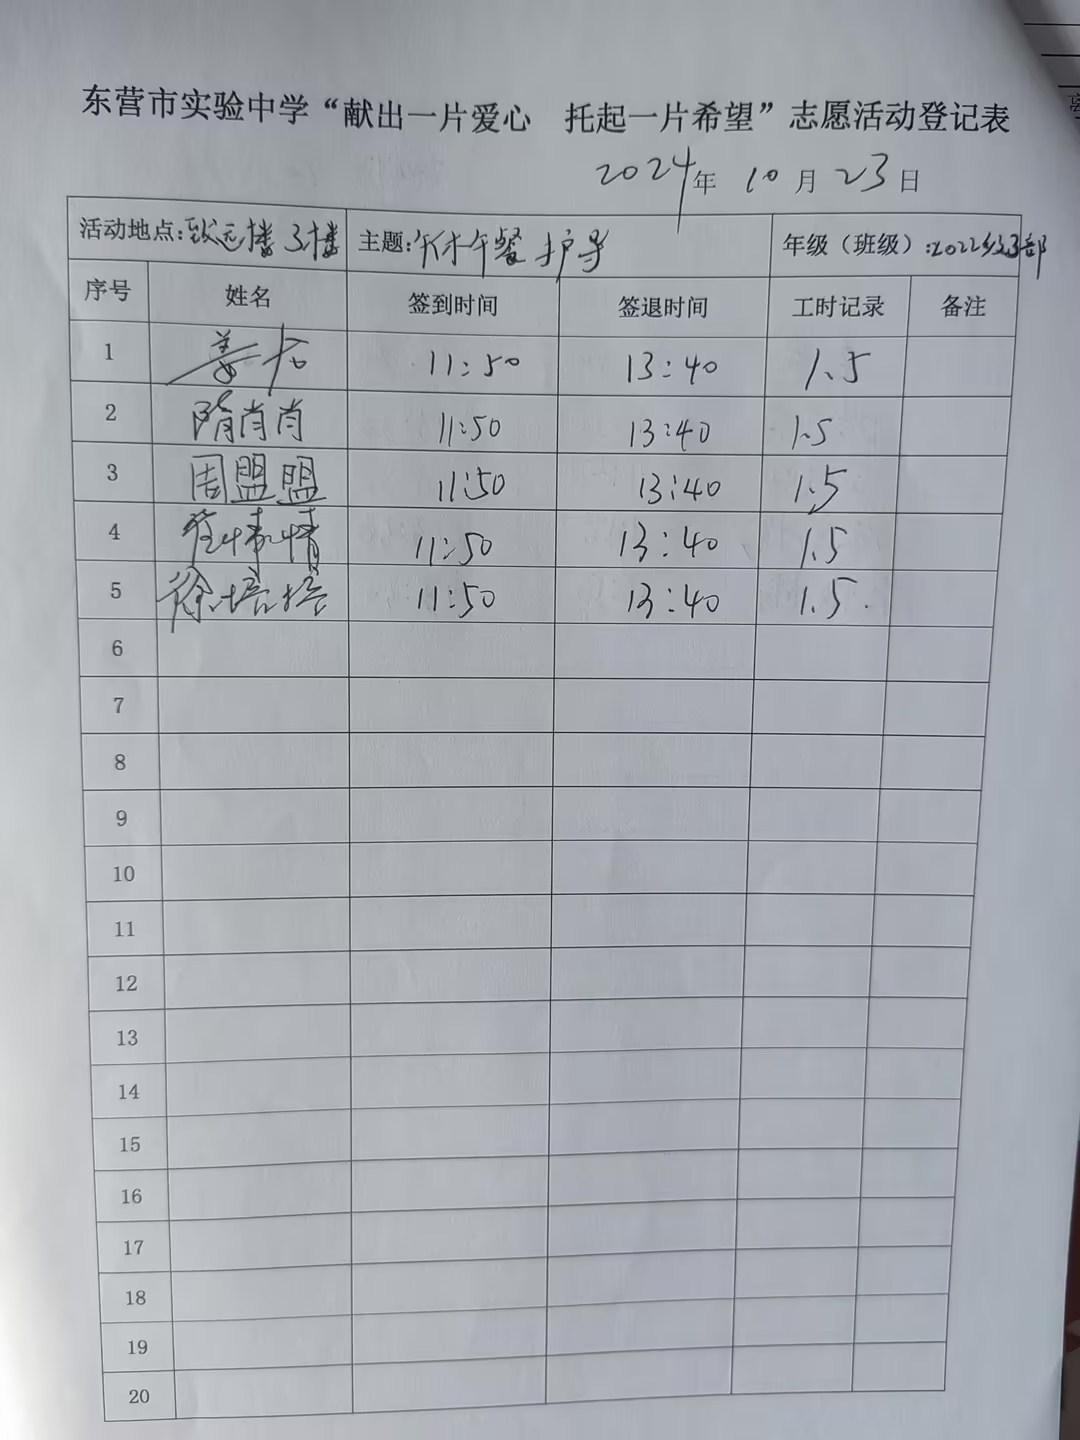 东营市实验中学“献出一片爱心 托起一片希望”志愿活动登记表
2024年 10月 23日
活动地点:致远楼 3楼 主题:午休午餐护导 年级（班级）:2022级3部
序号 姓名 签到时间 签退时间 工时记录 备注
1 姜 11:50 13:40 1.5
2 隋肖肖 11:50 13:40 1.5
3 周盟盟 11:50 13:40 1.5
4 11:50 13:40 1.5
5 徐培培 11:50 13:40 1.5
6
7
8
9
10
11
12
13
14
15
16
17
18
19
20